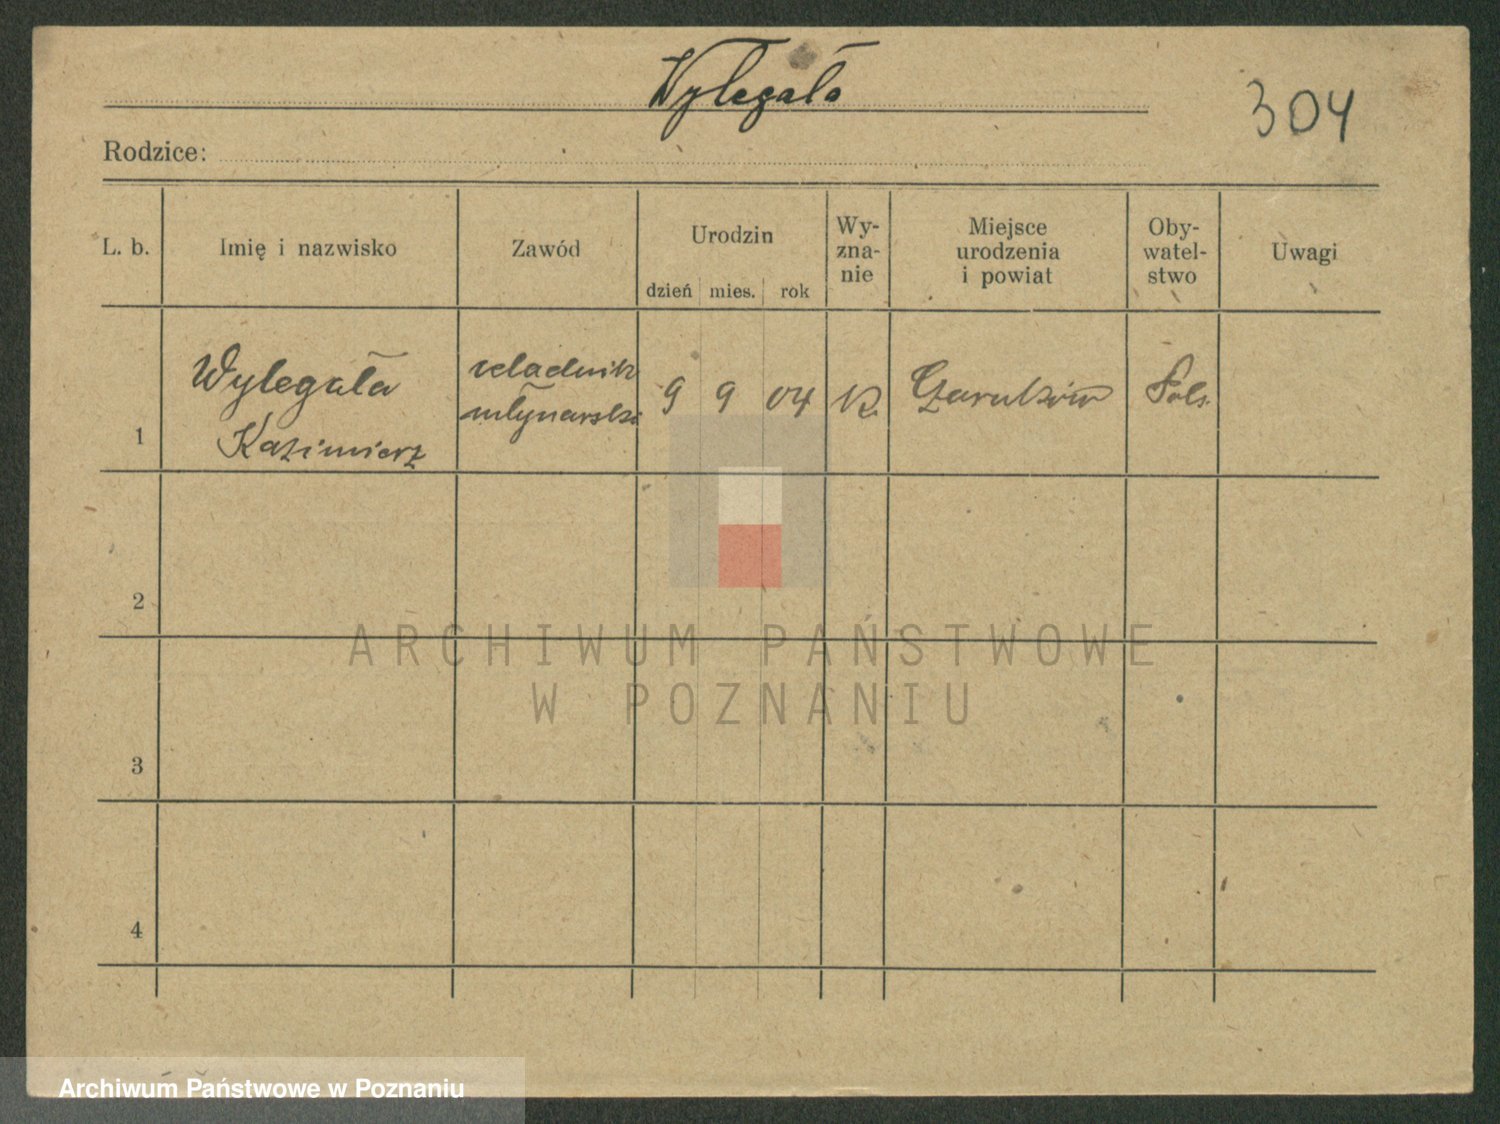 Wylegała
304
Rodzice:
L. b.
Imię i nazwisko
Zawód
Urodzin
dzień mies. rok
Wy-
zna-
nie
Miejsce
urodzenia
i powiat
Oby-
watel-
stwo
Uwagi
1
Wylegała
Kazimierz
czeladnik
młynarski
9 9 04
K.
Czarnków
Pols.
2
3
4
ARCHIWUM PAŃSTWOWE
W POZNANIU
Archiwum Państwowe w Poznaniu